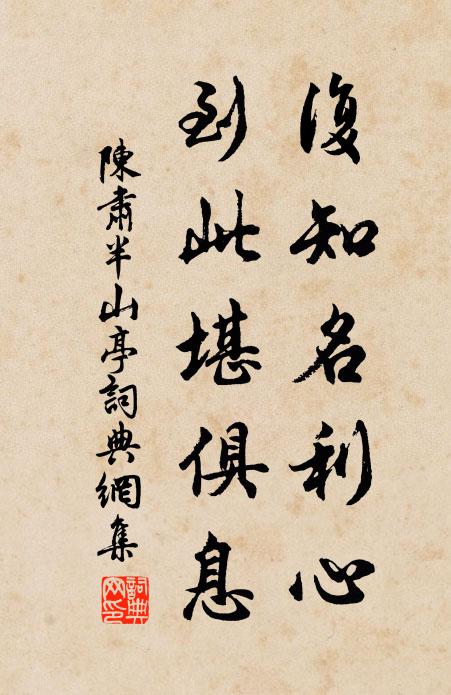 復知名利心
到此堪俱息
陳肅半山亭詞典網集
詞典网印